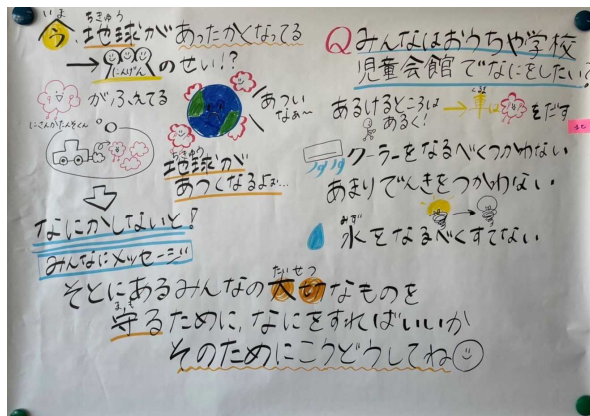 いま ちきゅう
今、地球があったかくなってる
→にんげんのせい!?
がふえてる
にさんかたんそくん
あついなぁ~
ちきゅう
地球が
あつくなるよぉ…
なにかしないと!
みんなにメッセージ
Qみんなはおうちや学校
児童会館でなにをしたい?
あるけるところは
あるく!
くるま
→車はをだす
クーラーをなるべくつかわない
あまりでんきをつかわない
みず
水をなるべくすてない
たいせつ
そとにあるみんなの大切なものを
まも
守るために、なにをすればいいか
そのためにこうどうしてね